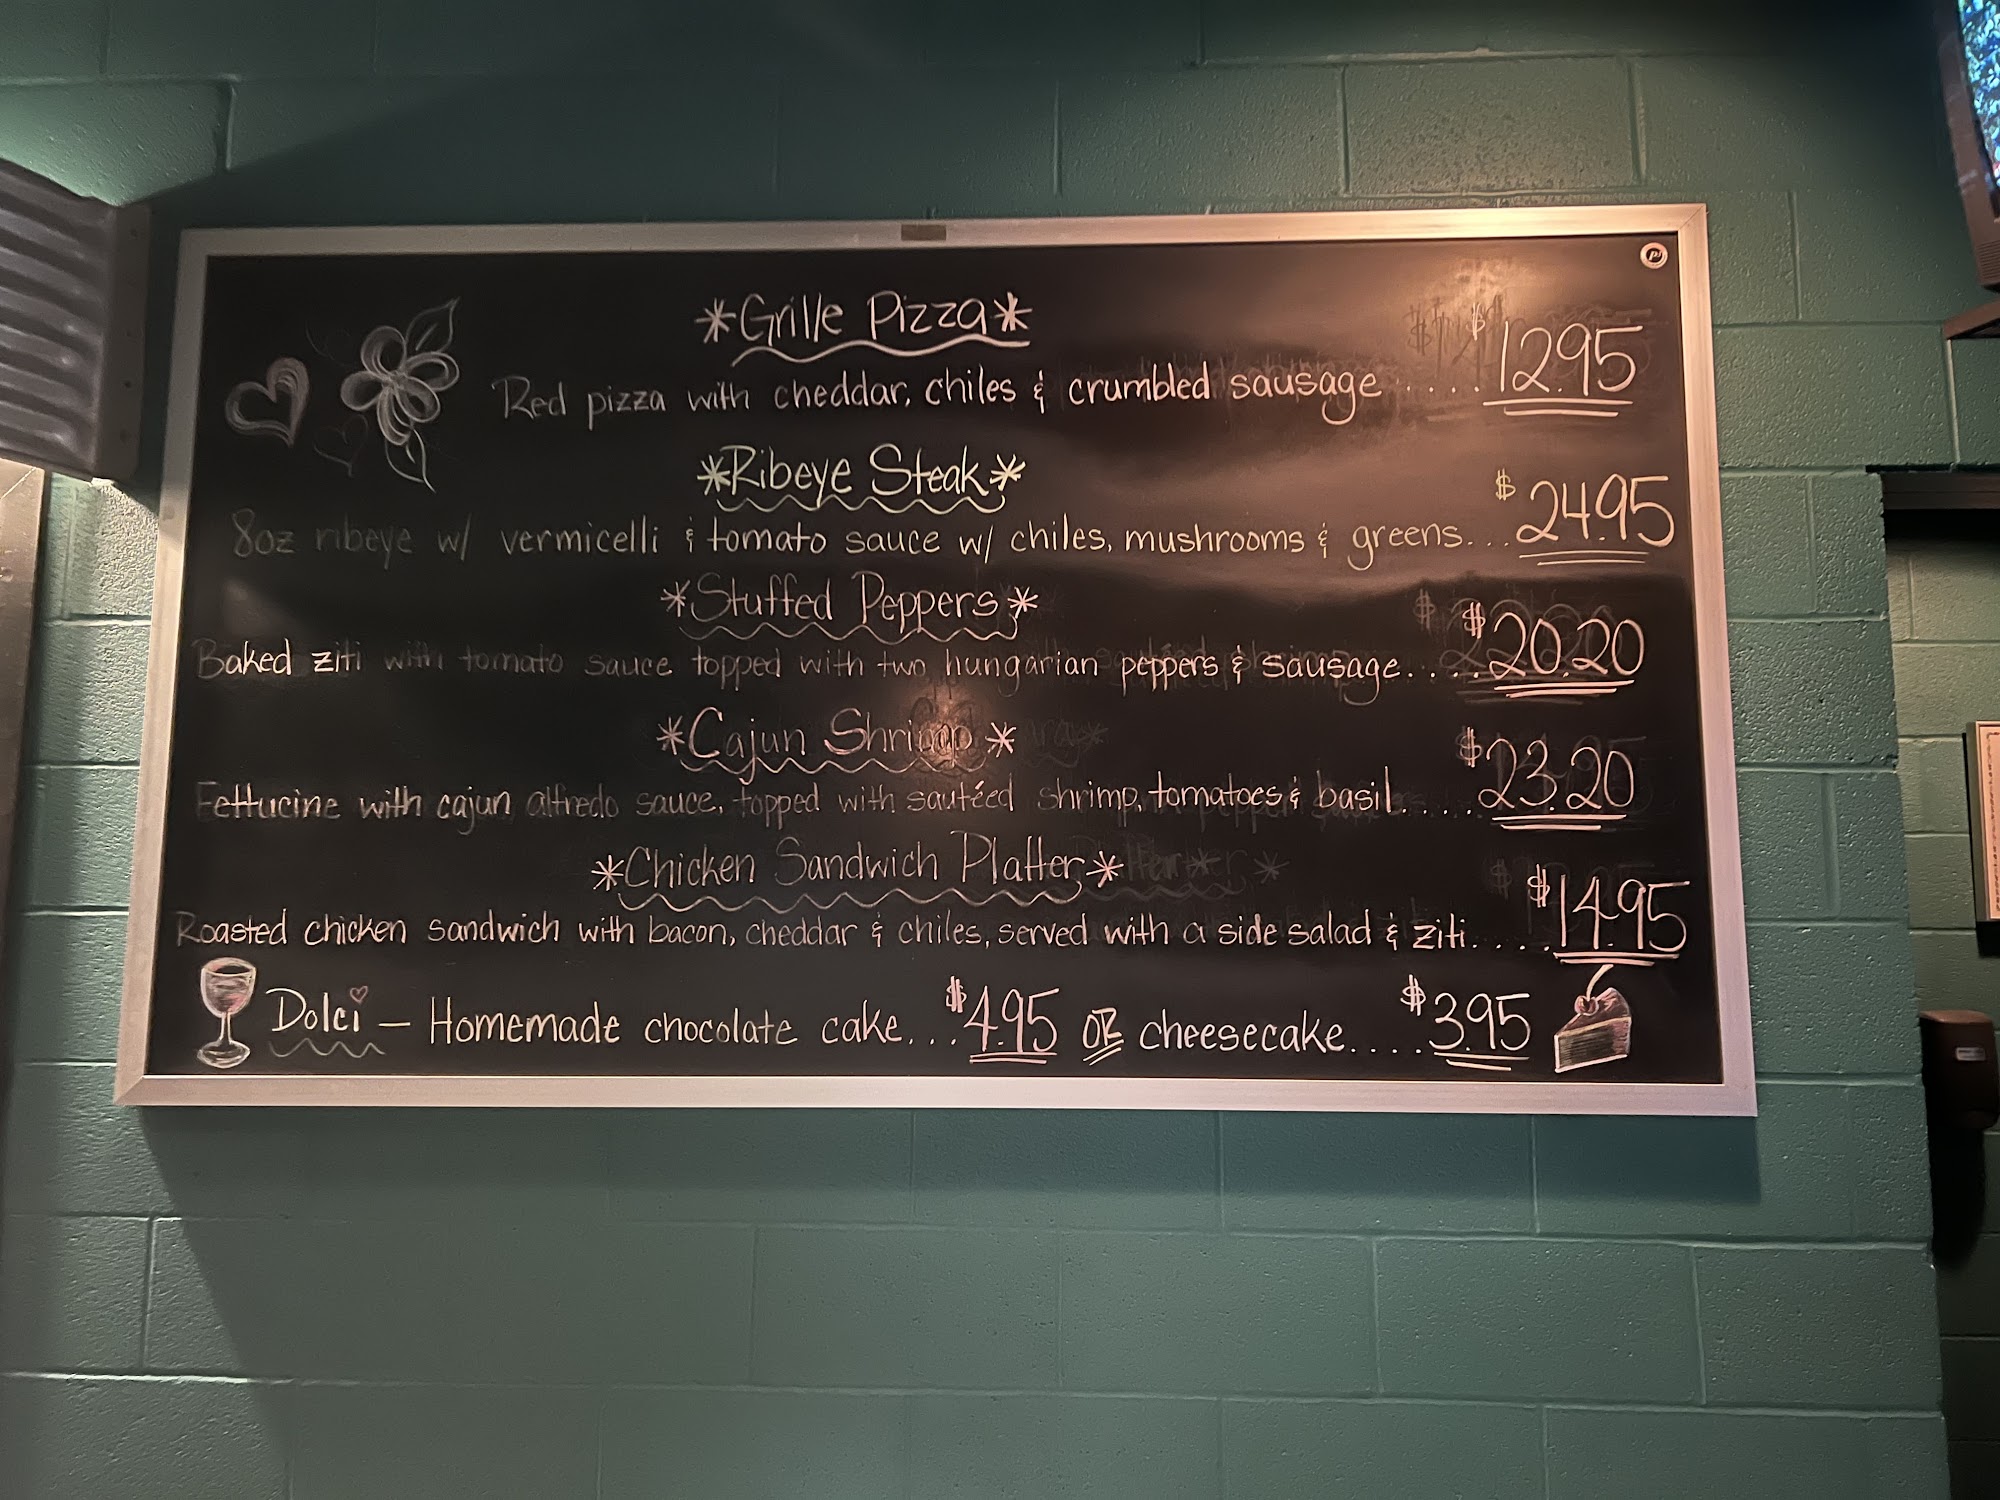 *Grille Pizza*
Red pizza with cheddar, chiles & crumbled sausage.....$12.95
*Ribeye Steak*
8oz ribeye w/ vermicelli & tomato sauce w/ chiles, mushrooms & greens...$24.95
*Stuffed Peppers*
Baked ziti with tomato sauce topped with two hungarian peppers & sausage.....$20.20
*Cajun Shrimp*
Fettucine with cajun alfredo sauce, topped with sautéed shrimp, tomatoes & basil.....$23.20
*Chicken Sandwich Platter*
Roasted chicken sandwich with bacon, cheddar & chiles, served with a side salad & ziti.....$14.95
Dolci — Homemade chocolate cake...$4.95 OR cheesecake....$3.95